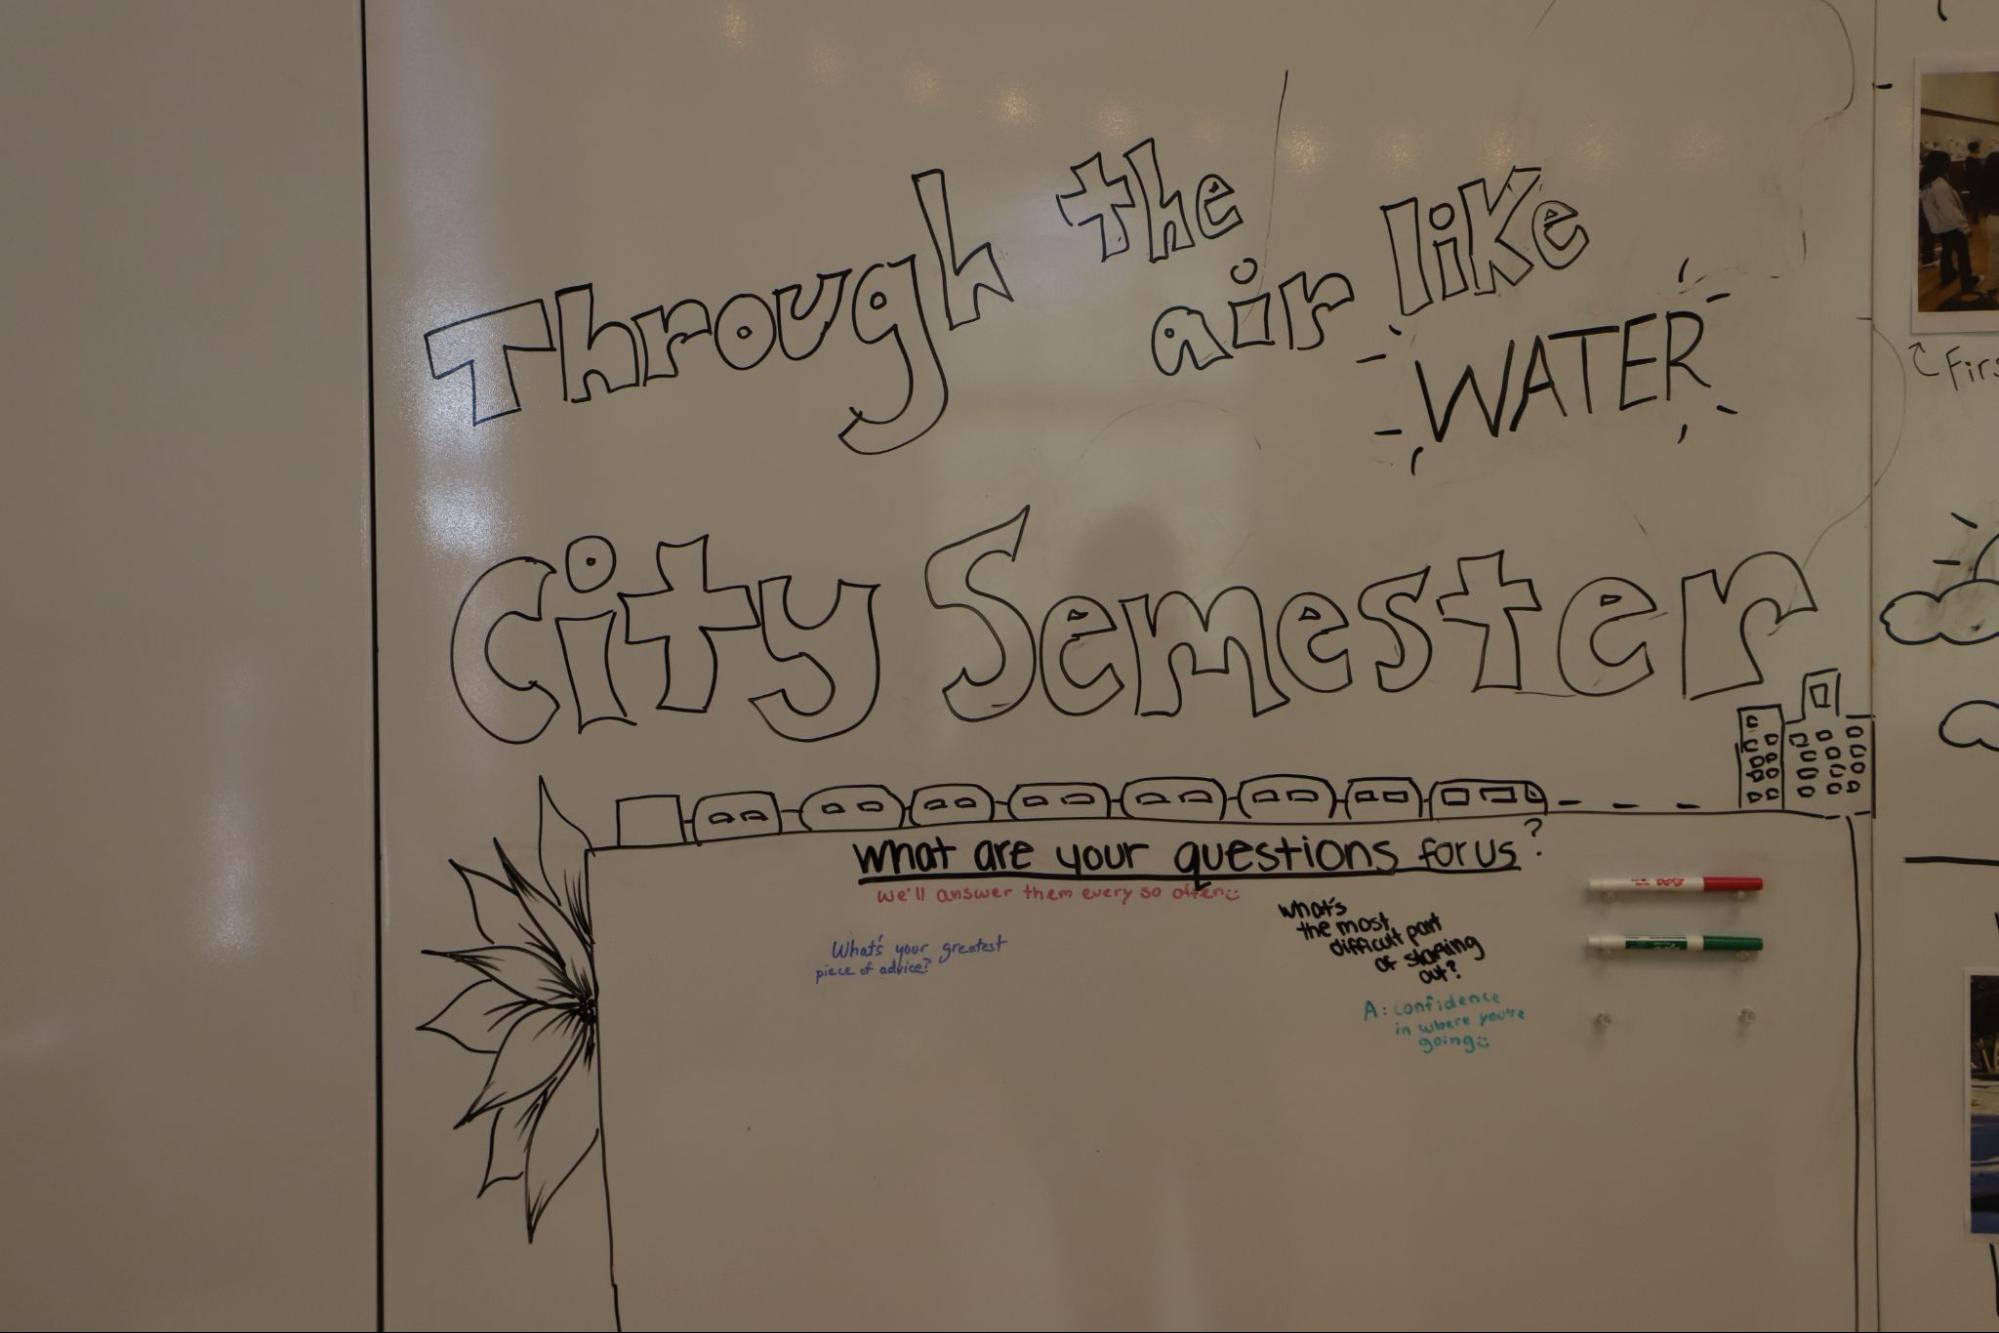 Through the
air like
WATER
City Semester
what are your questions for us?
we'll answer them every so often
What's your greatest
piece of advice?
what's
the most
difficult part
of starting
out?
A: confidence
in where you're
going